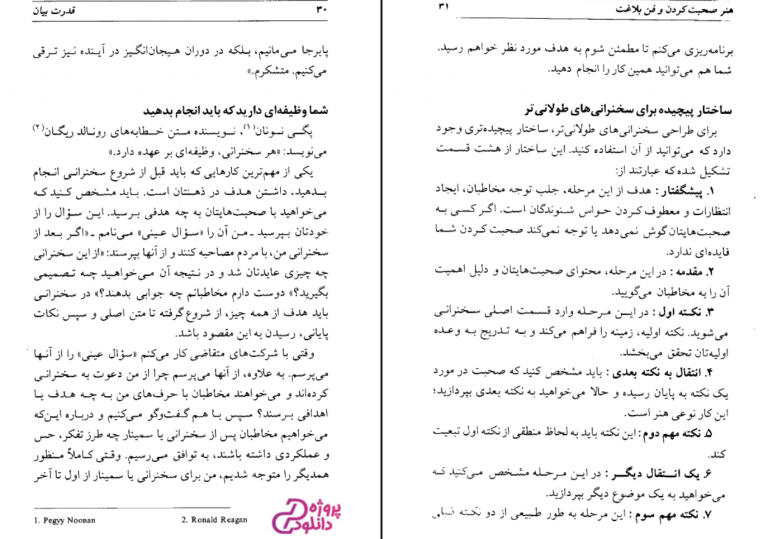 ۳۰ قدرت بیان
پابرجا می‌مانیم، بلکه در دوران هیجان‌انگیز در آینده نیز ترقی
می‌کنیم. متشکرم.»
شما وظیفه‌ای دارید که باید انجام بدهید
پگی نونان(۱)، نویسنده متن خطابه‌های رونالد ریگان(۲)
می‌نویسد: «هر سخنرانی، وظیفه‌ای بر عهده دارد.»
یکی از مهم‌ترین کارهایی که باید قبل از شروع سخنرانی انجام
بدهید، داشتن هدف در ذهنتان است. باید مشخص کنید که
می‌خواهید با صحبت‌هایتان به چه هدفی برسید. این سؤال را از
خودتان بپرسید ـ من آن را «سؤال عینی» می‌نامم ـ «اگر بعد از
سخنرانی من، با مردم مصاحبه کنند و از آنها بپرسند: «از این سخنرانی
چه چیزی عایدتان شد و در نتیجه آن می‌خواهید چه تصمیمی
بگیرید؟» دوست دارم مخاطبانم چه جوابی بدهند؟» در سخنرانی
باید هدف از همه چیز، از شروع گرفته تا متن اصلی و سپس نکات
پایانی، رسیدن به این مقصود باشد.
وقتی با شرکت‌های متقاضی کار می‌کنم «سؤال عینی» را از آنها
می‌پرسم. به علاوه، از آنها می‌پرسم چرا از من دعوت به سخنرانی
کرده‌اند و می‌خواهند مخاطبان با حرف‌های من به چه هدف یا
اهدافی برسند؟ سپس با هم گفت‌وگو می‌کنیم و درباره این‌که
می‌خواهیم مخاطبان پس از سخنرانی یا سمینار چه طرز تفکر، حس
و عملکردی داشته باشند، به توافق می‌رسیم. وقتی کاملاً منظور
همدیگر را متوجه شدیم، من برای سخنرانی یا سمینار از اول تا آخر
1. Pegyy Noonan 2. Ronald Reagan
پروژه
دانلود
هنر صحبت کردن و فن بلاغت ۳۱
برنامه‌ریزی می‌کنم تا مطمئن شوم به هدف مورد نظر خواهم رسید.
شما هم می‌توانید همین کار را انجام دهید.
ساختار پیچیده برای سخنرانی‌های طولانی‌تر
برای طراحی سخنرانی‌های طولانی‌تر، ساختار پیچیده‌تری وجود
دارد که می‌توانید از آن استفاده کنید. این ساختار از هشت قسمت
تشکیل شده که عبارتند از:
۱. پیشگفتار: هدف از این مرحله، جلب توجه مخاطبان، ایجاد
انتظارات و معطوف کردن حواس شنوندگان است. اگر کسی به
صحبت‌هایتان گوش نمی‌دهد یا توجه نمی‌کند صحبت کردن شما
فایده‌ای ندارد.
۲. مقدمه: در این مرحله، محتوای صحبت‌هایتان و دلیل اهمیت
آن را به مخاطبان می‌گویید.
۳. نکته اول: در این مرحله وارد قسمت اصلی سخنرانی
می‌شوید. نکته اولیه، زمینه را فراهم می‌کند و به تدریج به وعده
اولیه‌تان تحقق می‌بخشد.
۴. انتقال به نکته بعدی: باید مشخص کنید که صحبت در مورد
یک نکته به پایان رسیده و حالا می‌خواهید به نکته بعدی بپردازید؛
این کار نوعی هنر است.
۵. نکته مهم دوم: این نکته باید به لحاظ منطقی از نکته اول تبعیت
کند.
۶. یک انتقال دیگر: در این مرحله مشخص می‌کنید که
می‌خواهید به یک موضوع دیگر بپردازید.
۷. نکته مهم سوم: این مرحله به طور طبیعی از دو نکته قبلی